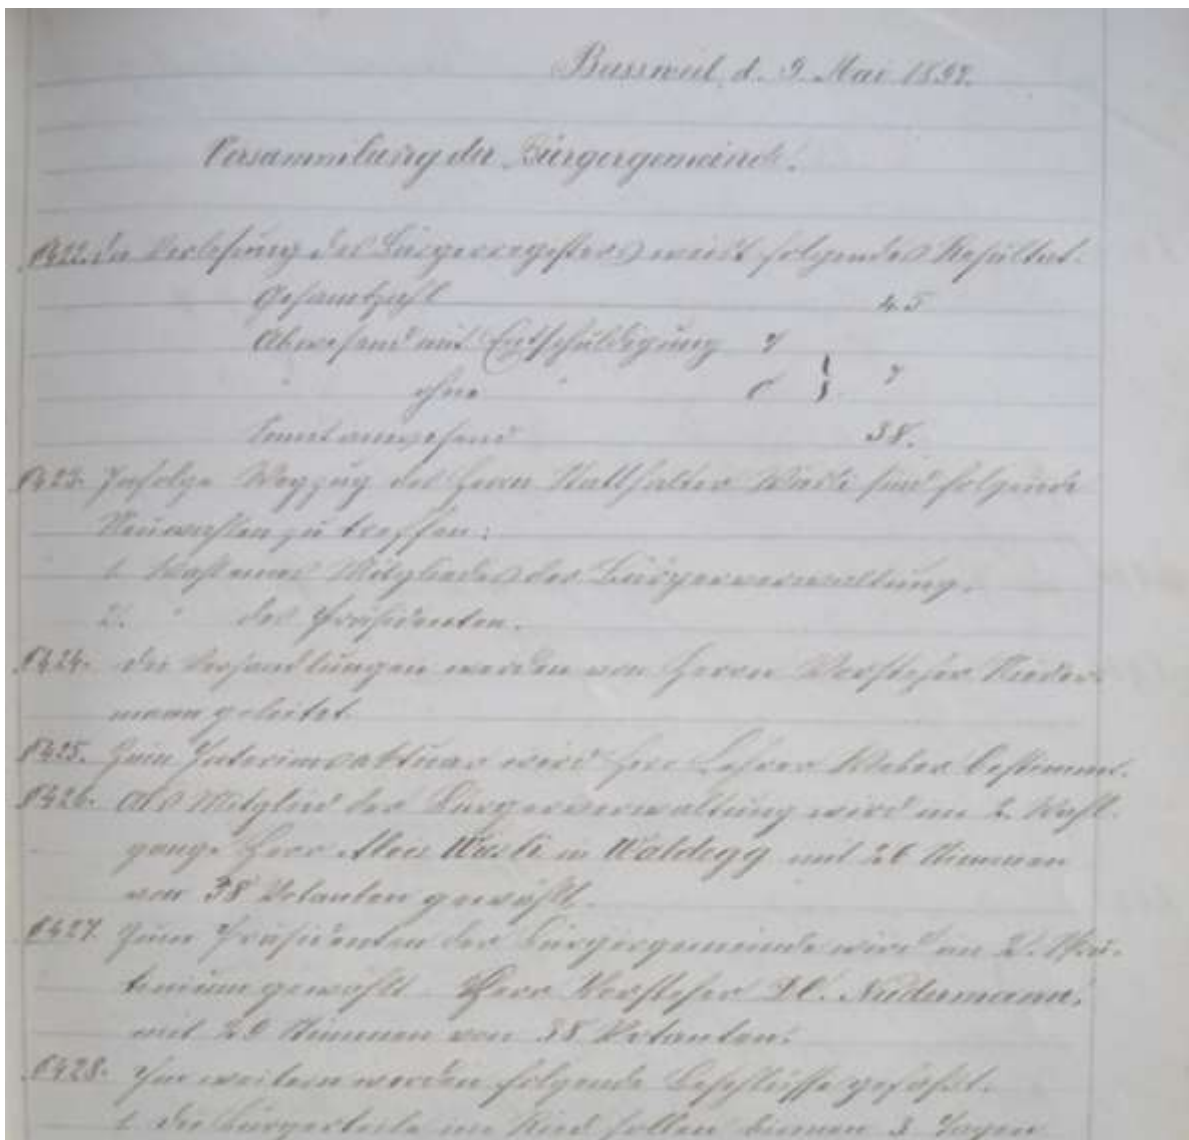 Bussweil, d. 9. Mai 1897.
Versammlung der Bürgergemeinde.
§422. Die Verlesung des Bürgerregisters weist folgendes Resultat.
Gesamtzahl 45
Abwesend mit Entschuldigung 7
" ohne " 0 } 7
Somit anwesend 38.
§423. Infolge Wegzug des Herrn Statthalter Wäsli sind folgende
Neuwahlen zu treffen:
1. Wahl eines Mitgliedes der Bürgerverwaltung.
2. " des Präsidenten.
§424. Die Verhandlungen werden von Herrn Vorsteher Nieder-
mann geleitet.
§425. Zum Interimsaktuar wird Herr Lehrer Weber bestimmt.
§426. Als Mitglied der Bürgerverwaltung wird im 2. Wahl-
gange Herr Alois Wäsli in Waldegg mit 26 Stimmen
von 38 Votanten gewählt.
§427. Zum Präsidenten der Bürgergemeinde wird im 2. Skru-
tinium gewählt Herr Vorsteher Niedermann,
mit 20 Stimmen von 38 Votanten.
§428. Im weitern werden folgende Beschlüsse gefaßt.
1. Die Bürgerteile im Ried sollen binnen 3 Tagen